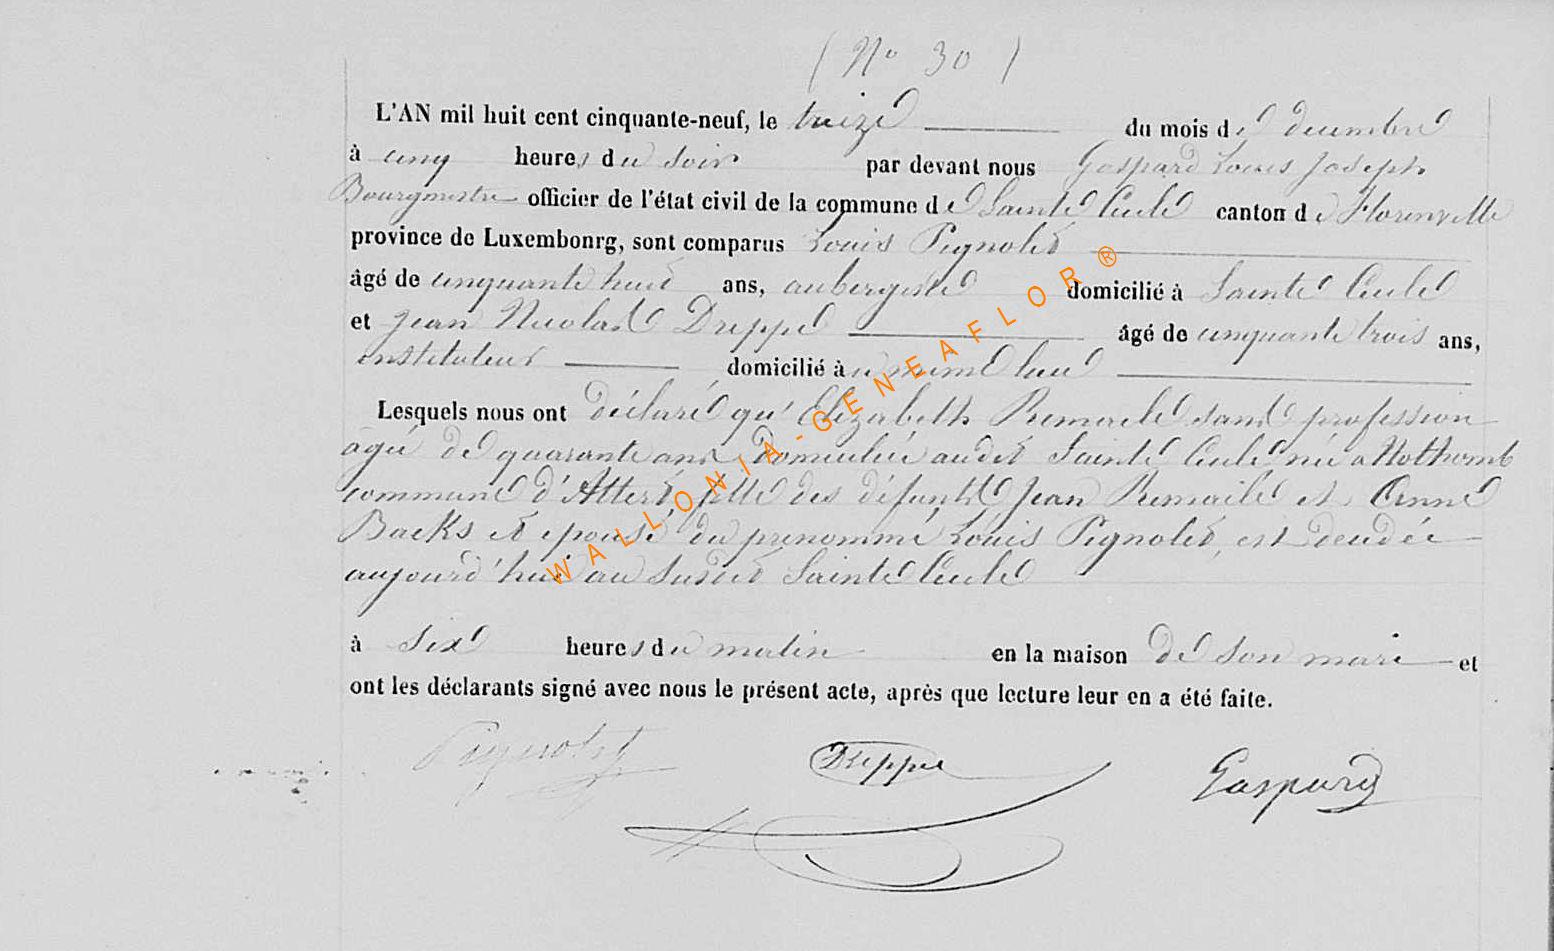 ( No 30 )
L'AN mil huit cent cinquante-neuf, le treize du mois de decembre
à cinq heures du soir par devant nous Gaspard Louis Joseph
Bourgmestre officier de l'état civil de la commune de Sainte Cecile canton de Florenville
province de Luxembonrg, sont comparus Louis Pignolet
âgé de cinquante huit ans, aubergiste domicilié à Sainte Cecile
et Jean Nicolas Dreppe âgé de cinquante trois ans,
instituteur domicilié au meme lieu
Lesquels nous ont déclaré qu'Elizabeth Remacle sans profession
agée de quarante ans domiciliée audit Sainte Cecile née a Nothomb
commune d'Attert fille des défunts Jean Remacle et Anne
Backs et epouse du prenommé Louis Pignolet, est decedée
aujourd'hui au susdit Sainte Cecile
à six heures du matin en la maison de son mari et
ont les déclarants signé avec nous le présent acte, après que lecture leur en a été faite.
Pignolet Dreppe Gaspard
WALLONIA-GENEAFLOR ®